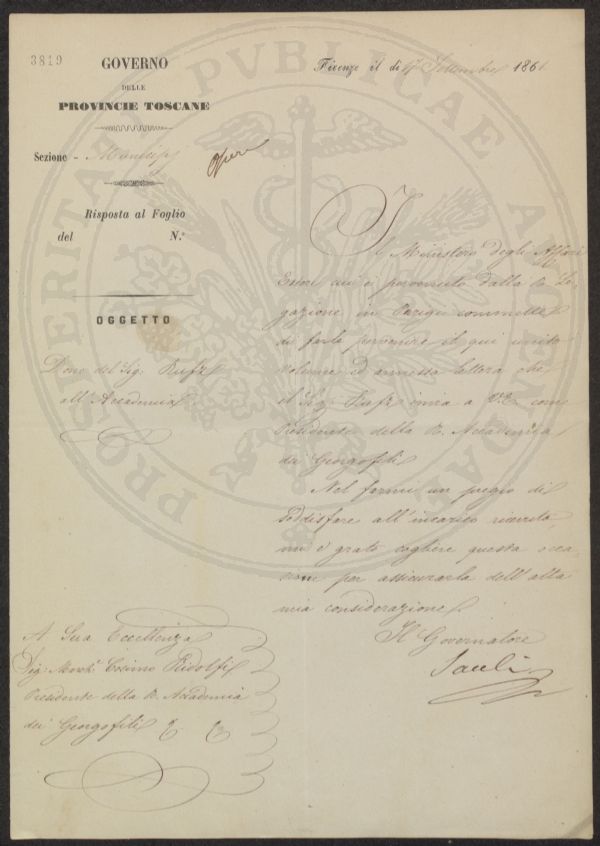 3819
GOVERNO
DELLE
PROVINCIE TOSCANE
Firenze il dì 17 Settembre 1861
Sezione -
Risposta al Foglio
del N.º
OGGETTO
Dono del Sig:
all'Accademia
Il Ministero degli Affari
Esteri cui è pervenuto dalla R. Le-
gazione in Parigi commette
di farle pervenire il qui unito
volume ed annessa lettera che
il Sig. invia a V.E. come
Presidente della R. Accademia
dei Georgofili
Nel farmi un pregio di
soddisfare all'incarico ricevuto,
mi è grato cogliere questa occa-
sione per assicurarla dell'alta
mia considerazione
Il Governatore
Sauli
A Sua Eccellenza
Sig: March: Cosimo Ridolfi
Presidente della R. Accademia
dei Georgofili
PROSPERITATI PVBLICAE AVGENDAE